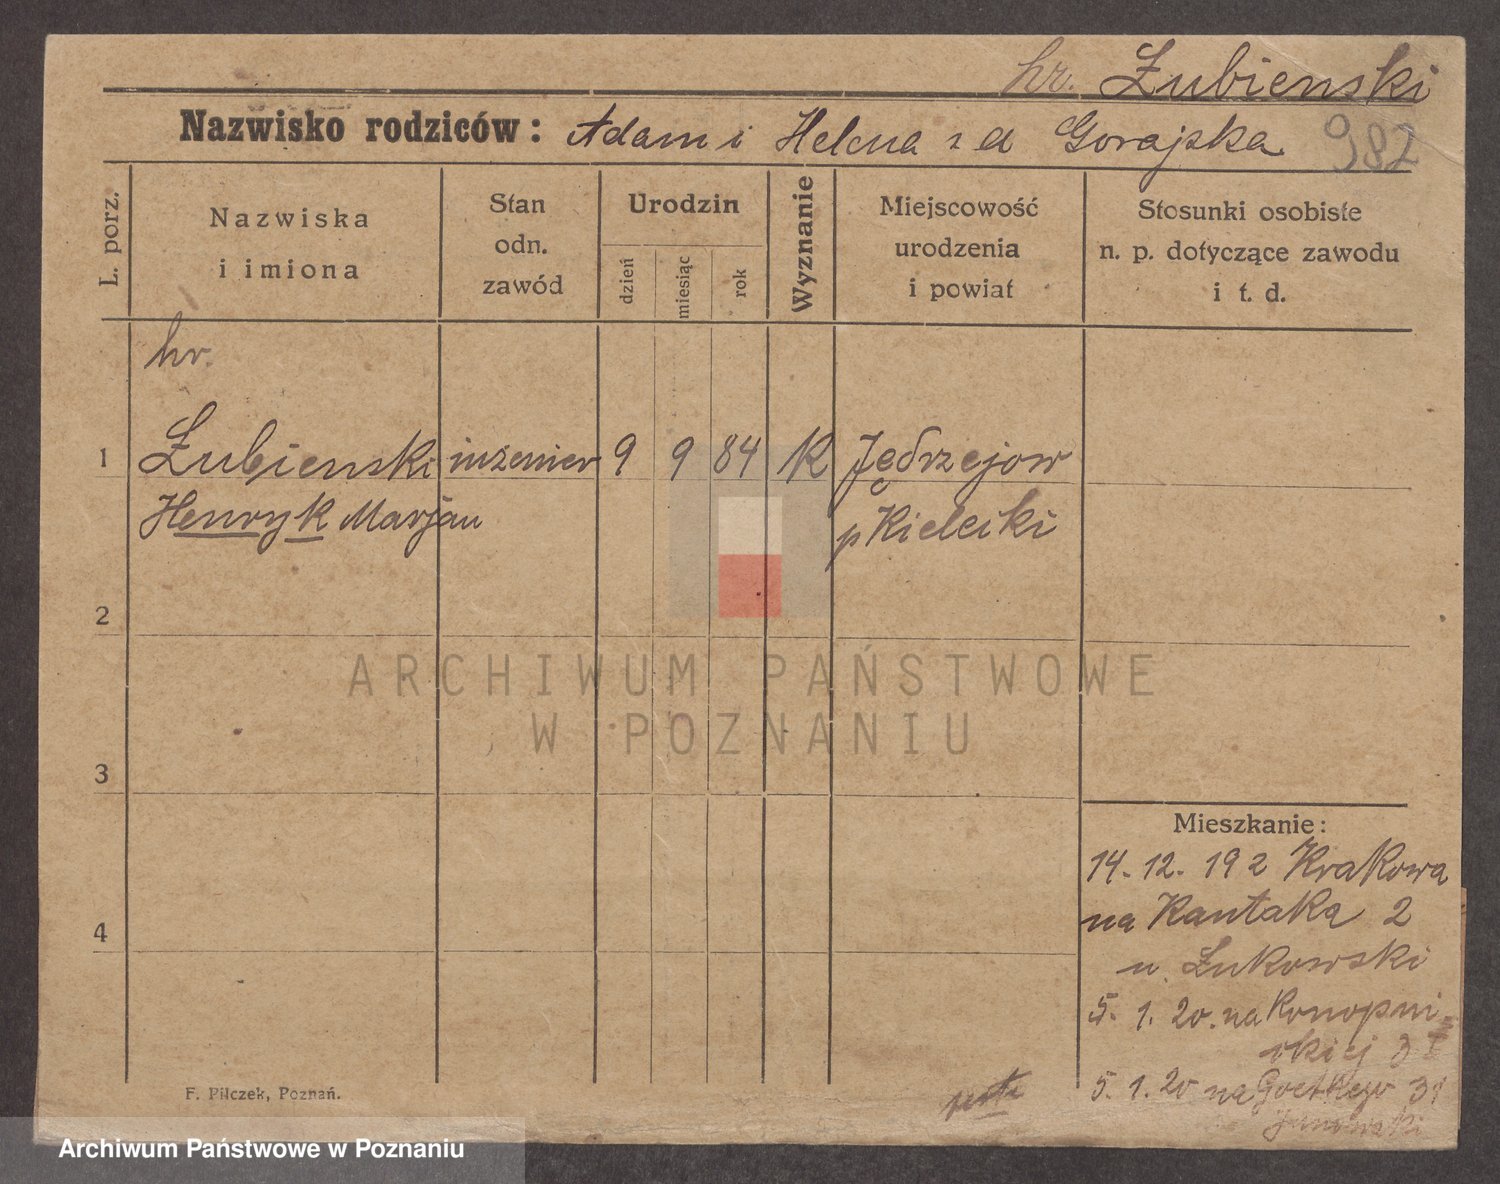 hr. Łubienski
Nazwisko rodziców: Adam i Helena z d Gorajska
982
L. porz.
Nazwiska
i imiona
Stan
odn.
zawód
Urodzin
dzień
miesiąc
rok
Wyznanie
Miejscowość
urodzenia
i powiat
Stosunki osobiste
n. p. dotyczące zawodu
i t. d.
hr.
1 Łubienski inżenier 9 9 84 K Jędrzejow
Henryk Marjan p Kielecki
2
ARCHIWUM PAŃSTWOWE
W POZNANIU
3
4
Mieszkanie:
14. 12. 19 z Krakowa
na Kantaka 2
u. Żukowski
5. 1. 20. na Konopni
ckiej 3
5. 1. 20 na Goethego 31
F. Pilczek, Poznań.
Archiwum Państwowe w Poznaniu